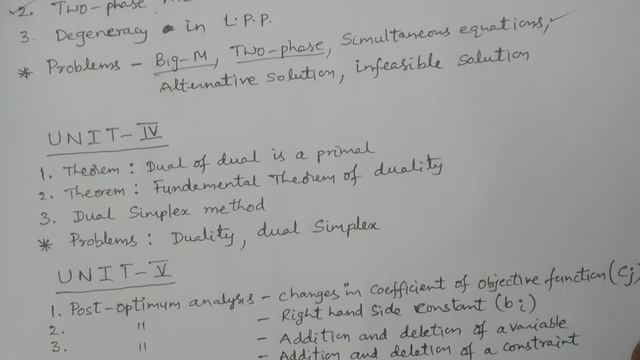 2. Two-phase
3. Degeneracy in L.P.P.
* Problems - Big-M, Two-phase, Simultaneous equations,
Alternative solution, infeasible solution
UNIT-IV
1. Theorem : Dual of dual is a primal
2. Theorem : Fundamental Theorem of duality
3. Dual Simplex method
* Problems : Duality, dual Simplex
UNIT-V
1. Post-optimum analysis - changes in coefficient of objective function (Cj)
2. " - Right hand side constant (bi)
3. " - Addition and deletion of a variable
- Addition and deletion of a constraint